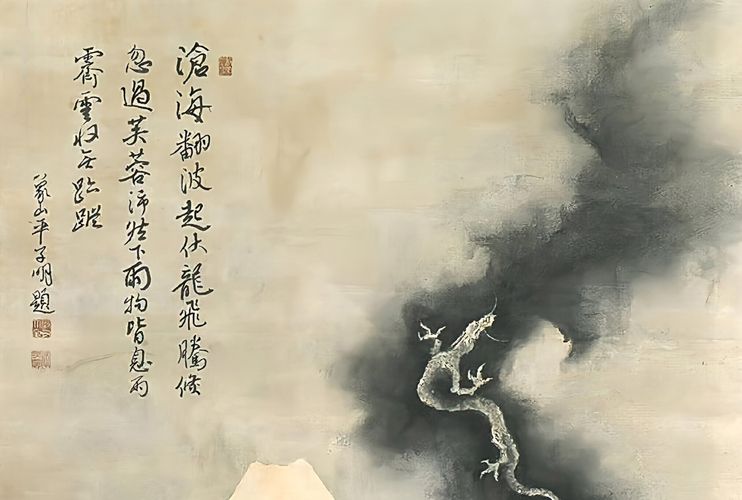 滄海翻波起伏龍飛騰倏
忽過芙蓉沛然下雨物皆息雨
霽雲收無趾蹤
蒙山平子明題